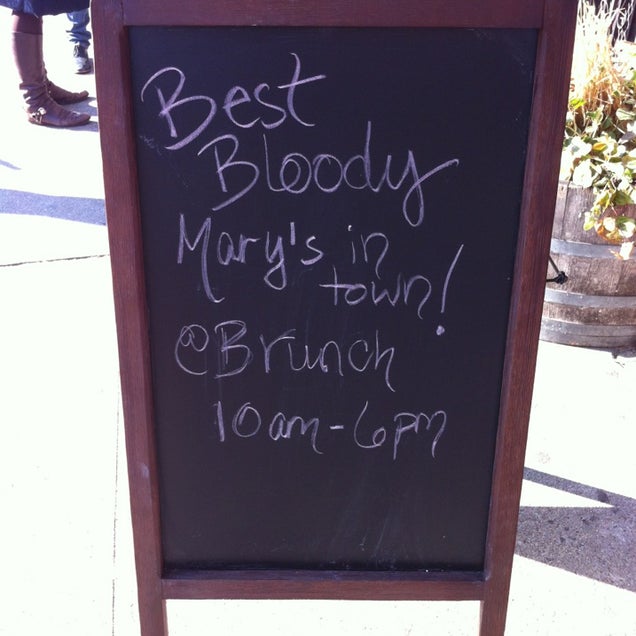 Best
Bloody
Mary's in
town!
@Brunch
10am-6pm